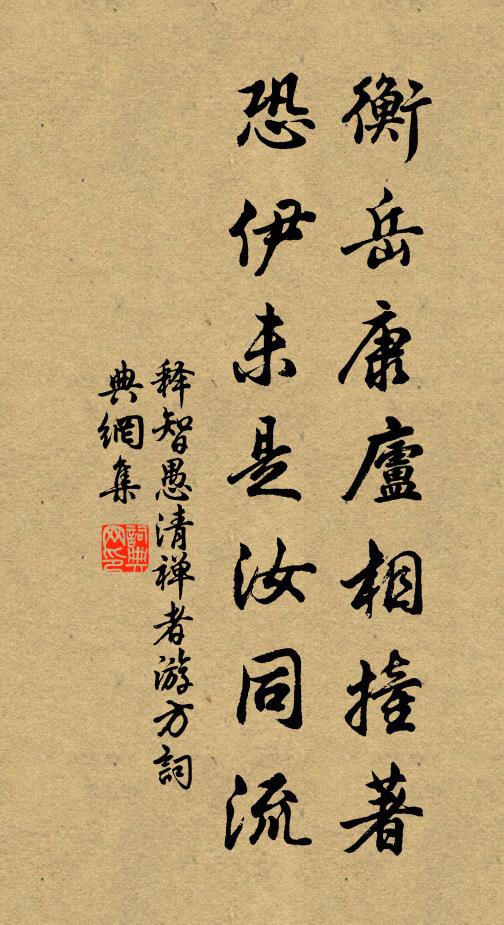 衡岳康廬相撞著
恐伊未是汝同流
释智愚清禅者游方詞
典網集
詞典網印